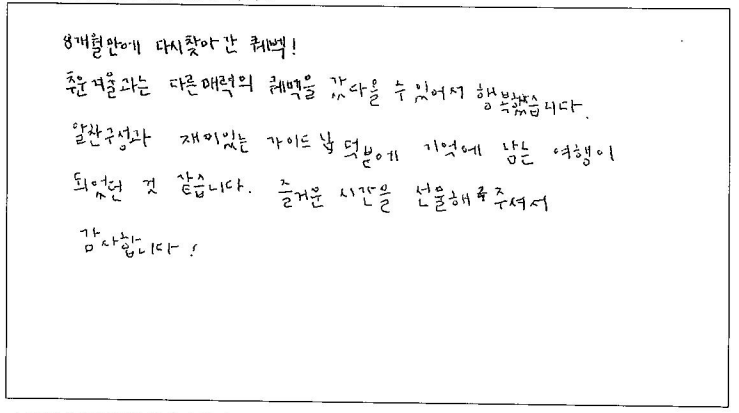 8개월만에 다시찾아 간 퀘벡!
추운겨울과는 다른매력의 퀘벡을 갔다올 수 있어서 행복했습니다.
알찬구성과 재미있는 가이드님 덕분에 기억에 남는 여행이
되었던 것 같습니다. 즐거운 시간을 선물해 주셔서
감사합니다!